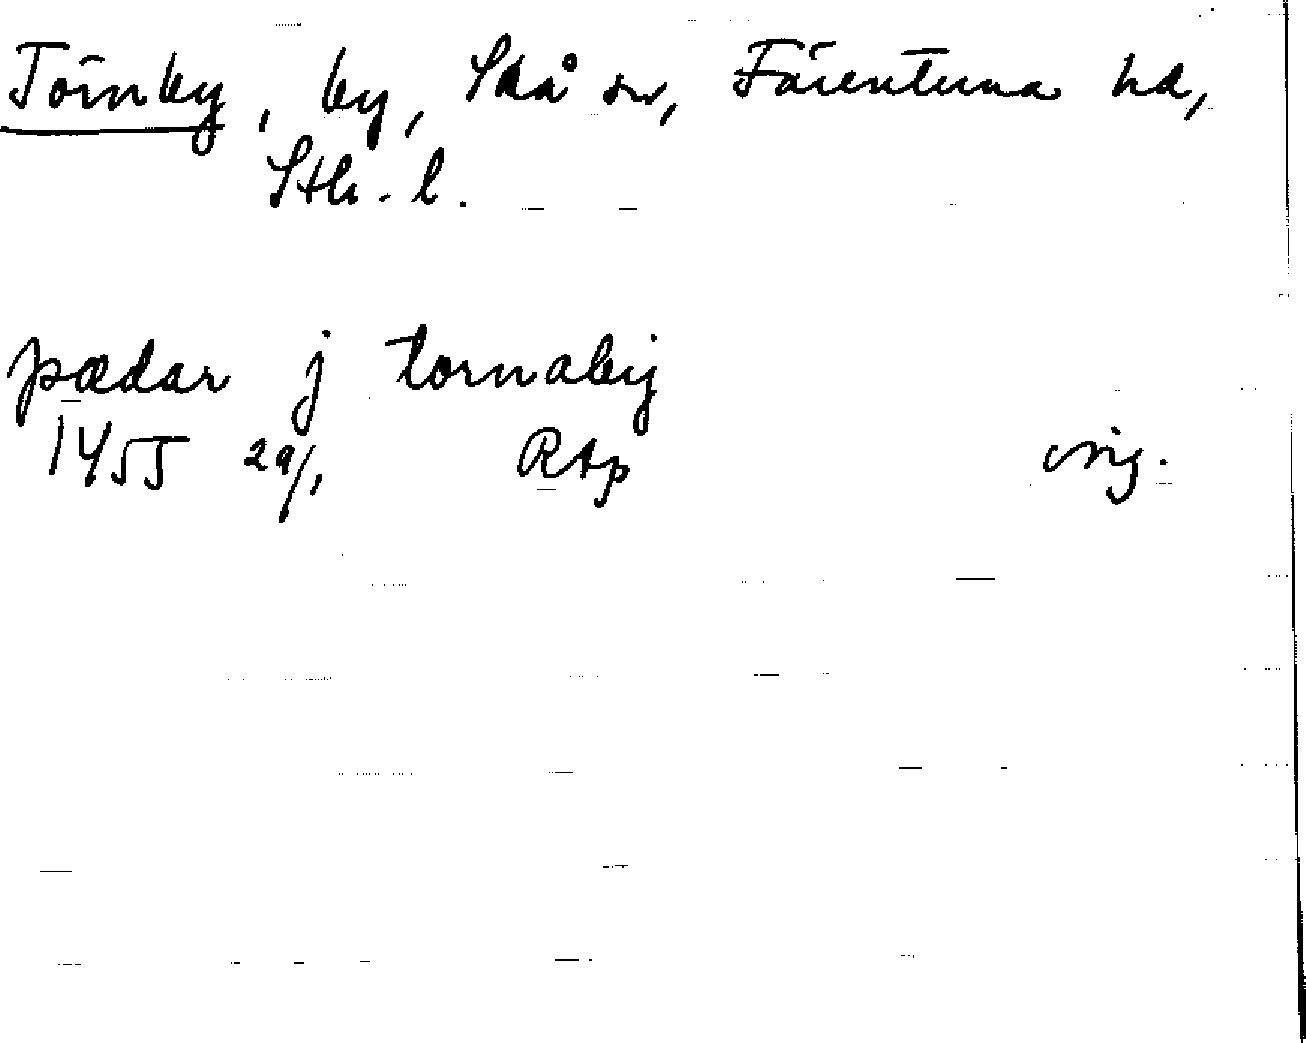 Törnby, by, Skå sn, Färentuna hd,
Sth. l.
pædar j tornabij
1455 29/1 RAp orig.